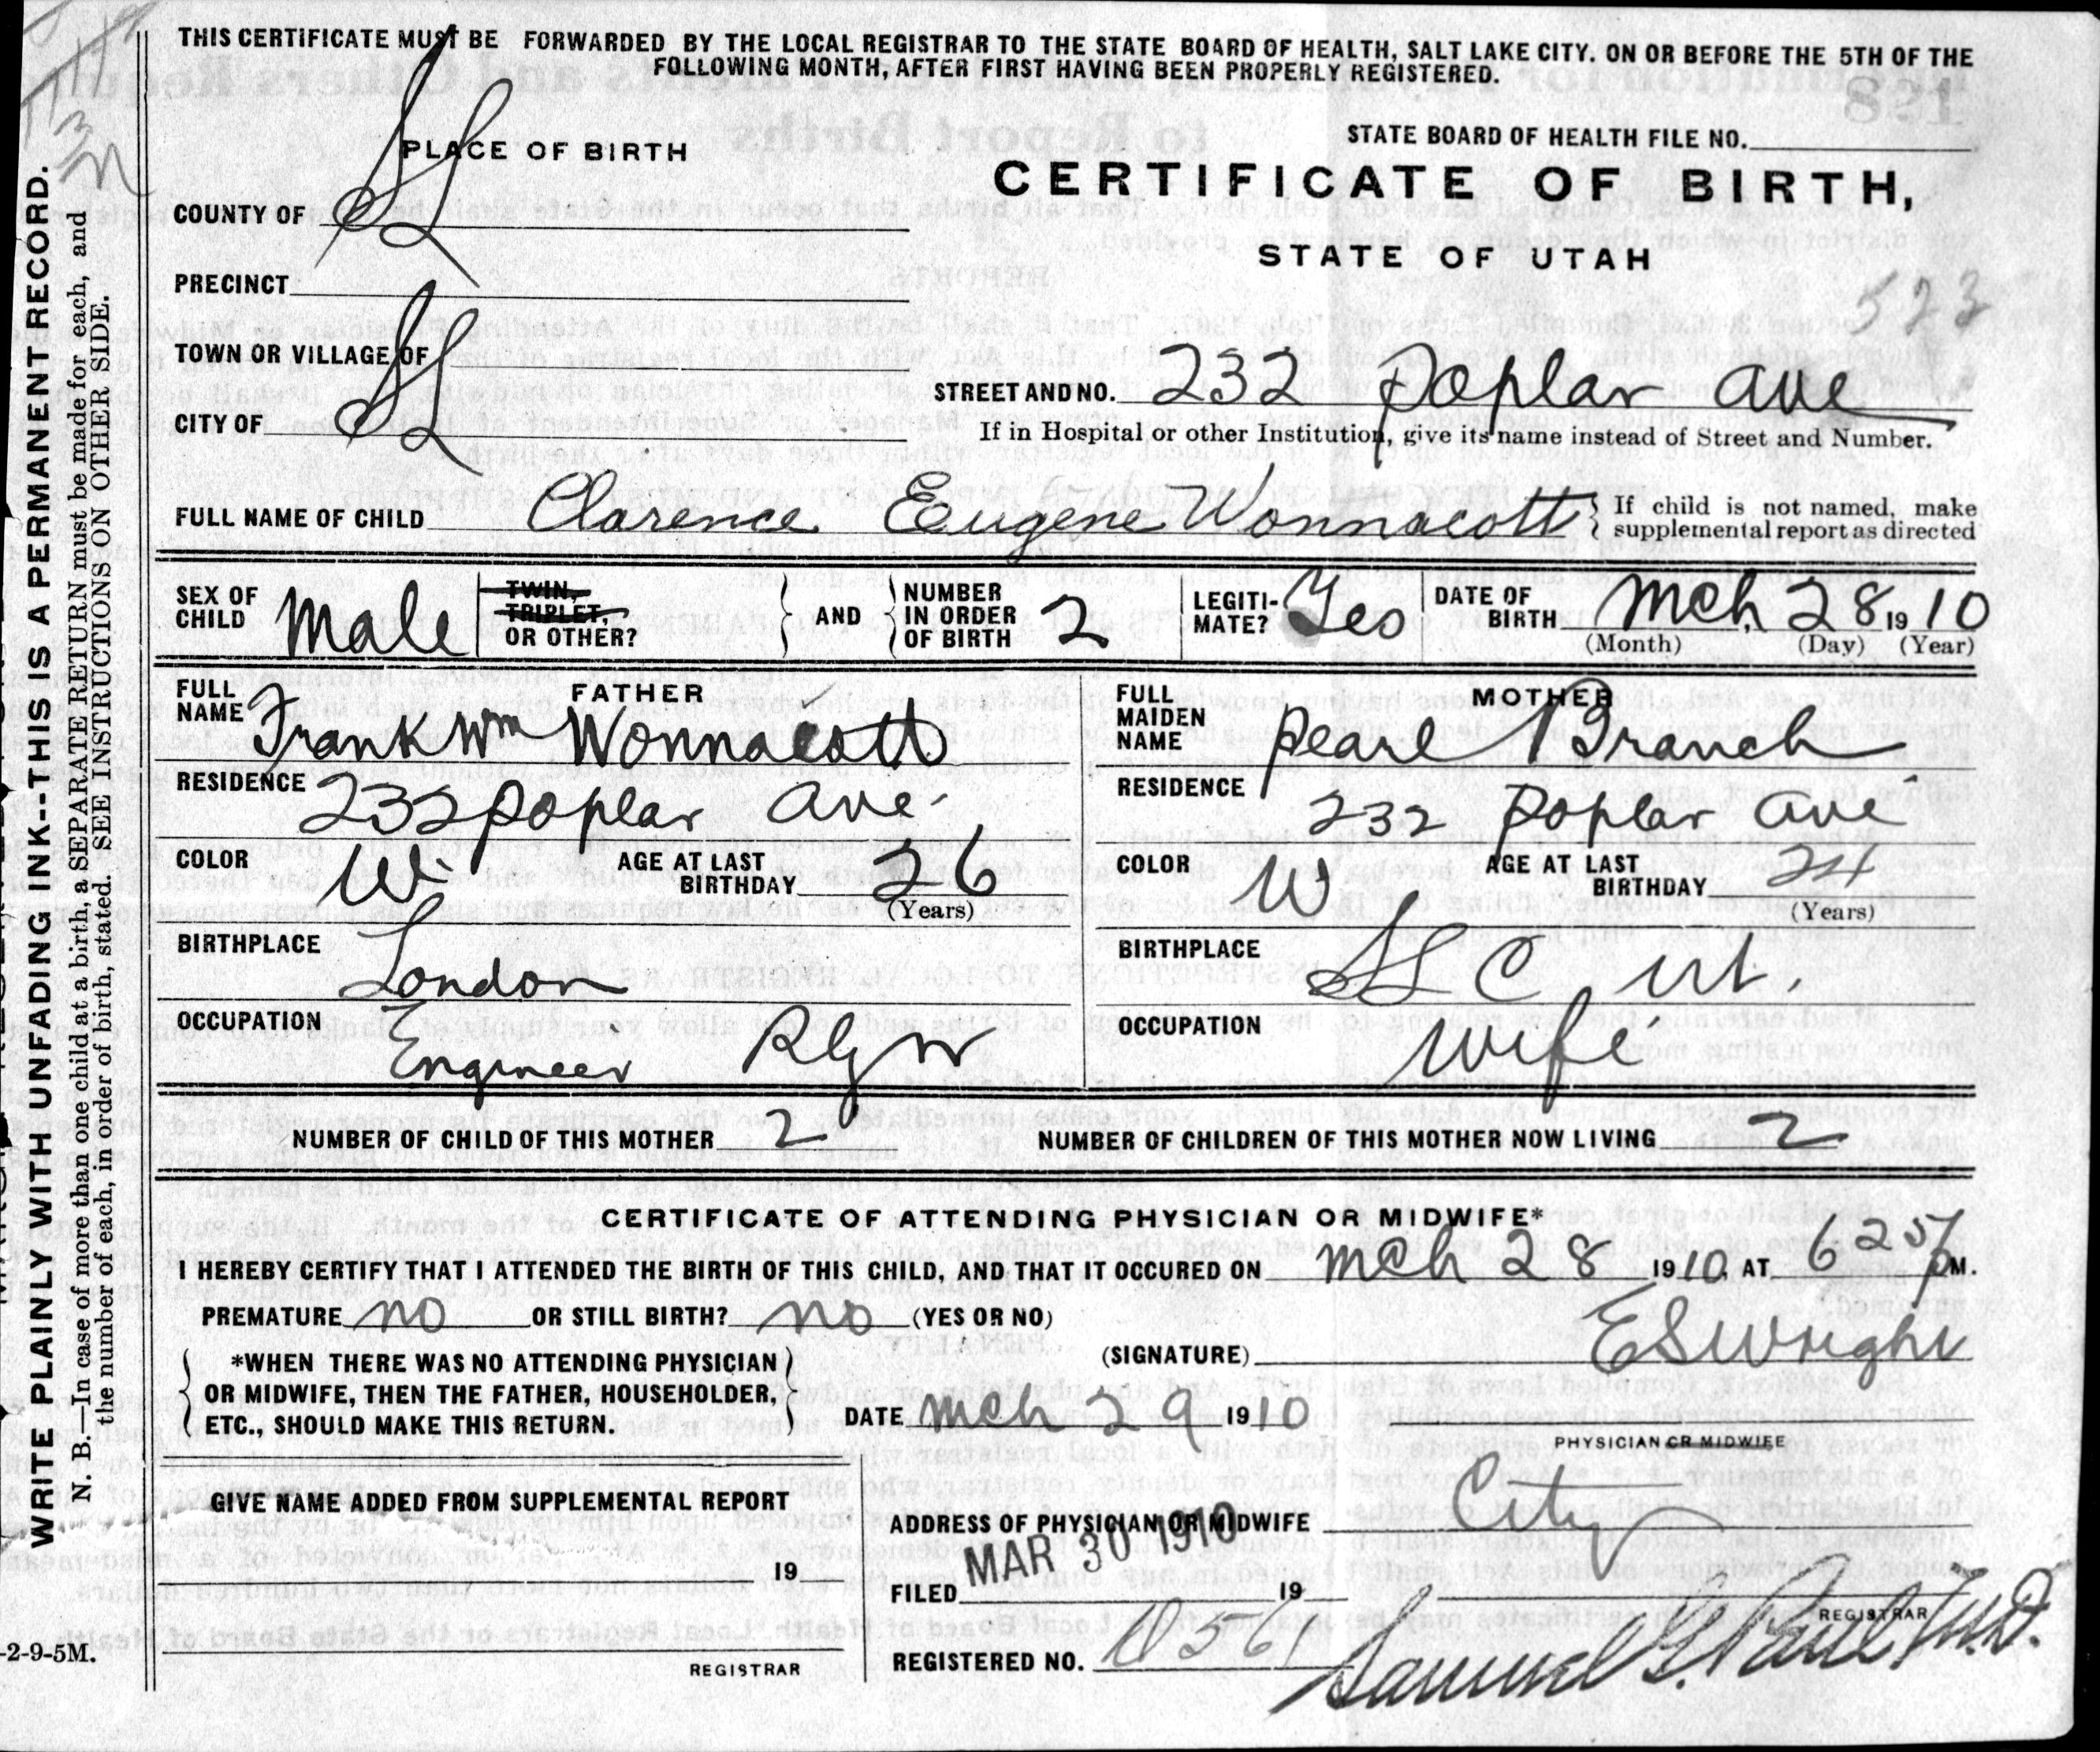 THIS CERTIFICATE MUST BE FORWARDED BY THE LOCAL REGISTRAR TO THE STATE BOARD OF HEALTH, SALT LAKE CITY. ON OR BEFORE THE 5TH OF THE
FOLLOWING MONTH, AFTER FIRST HAVING BEEN PROPERLY REGISTERED.
WRITE PLAINLY WITH UNFADING INK--THIS IS A PERMANENT RECORD.
N. B.—In case of more than one child at a birth, a SEPARATE RETURN must be made for each, and
the number of each, in order of birth, stated. SEE INSTRUCTIONS ON OTHER SIDE.
PLACE OF BIRTH
STATE BOARD OF HEALTH FILE NO.
CERTIFICATE OF BIRTH,
STATE OF UTAH
COUNTY OF SL
PRECINCT
523
TOWN OR VILLAGE OF
CITY OF SL
STREET AND NO. 232 Poplar ave
If in Hospital or other Institution, give its name instead of Street and Number.
FULL NAME OF CHILD Clarence Eugene Wonnacott
If child is not named, make
supplemental report as directed
SEX OF CHILD Male
TWIN,
TRIPLET,
OR OTHER?
AND
NUMBER IN ORDER OF BIRTH 2
LEGITI-MATE? Yes
DATE OF BIRTH Mch 28 1910
(Month) (Day) (Year)
FATHER
FULL NAME Frank Wm Wonnacott
RESIDENCE 232 Poplar ave.
COLOR W. AGE AT LAST BIRTHDAY 26
(Years)
BIRTHPLACE London
OCCUPATION Engineer Rlyw
MOTHER
FULL MAIDEN NAME Pearl Branch
RESIDENCE 232 Poplar ave
COLOR W AGE AT LAST BIRTHDAY 24
(Years)
BIRTHPLACE SLC Ut.
OCCUPATION wife
NUMBER OF CHILD OF THIS MOTHER 2 NUMBER OF CHILDREN OF THIS MOTHER NOW LIVING 2
CERTIFICATE OF ATTENDING PHYSICIAN OR MIDWIFE*
I HEREBY CERTIFY THAT I ATTENDED THE BIRTH OF THIS CHILD, AND THAT IT OCCURED ON Mch 28 1910 AT 6 25 PM.
PREMATURE no OR STILL BIRTH? no (YES OR NO)
*WHEN THERE WAS NO ATTENDING PHYSICIAN
OR MIDWIFE, THEN THE FATHER, HOUSEHOLDER,
ETC., SHOULD MAKE THIS RETURN.
(SIGNATURE) E S Wright
DATE Mch 29 1910
PHYSICIAN OR MIDWIFE
GIVE NAME ADDED FROM SUPPLEMENTAL REPORT
19
REGISTRAR
ADDRESS OF PHYSICIAN OR MIDWIFE City
FILED MAR 30 1910 19
REGISTRAR
REGISTERED NO.
Samuel G. Paul M.D.
-2-9-5M.